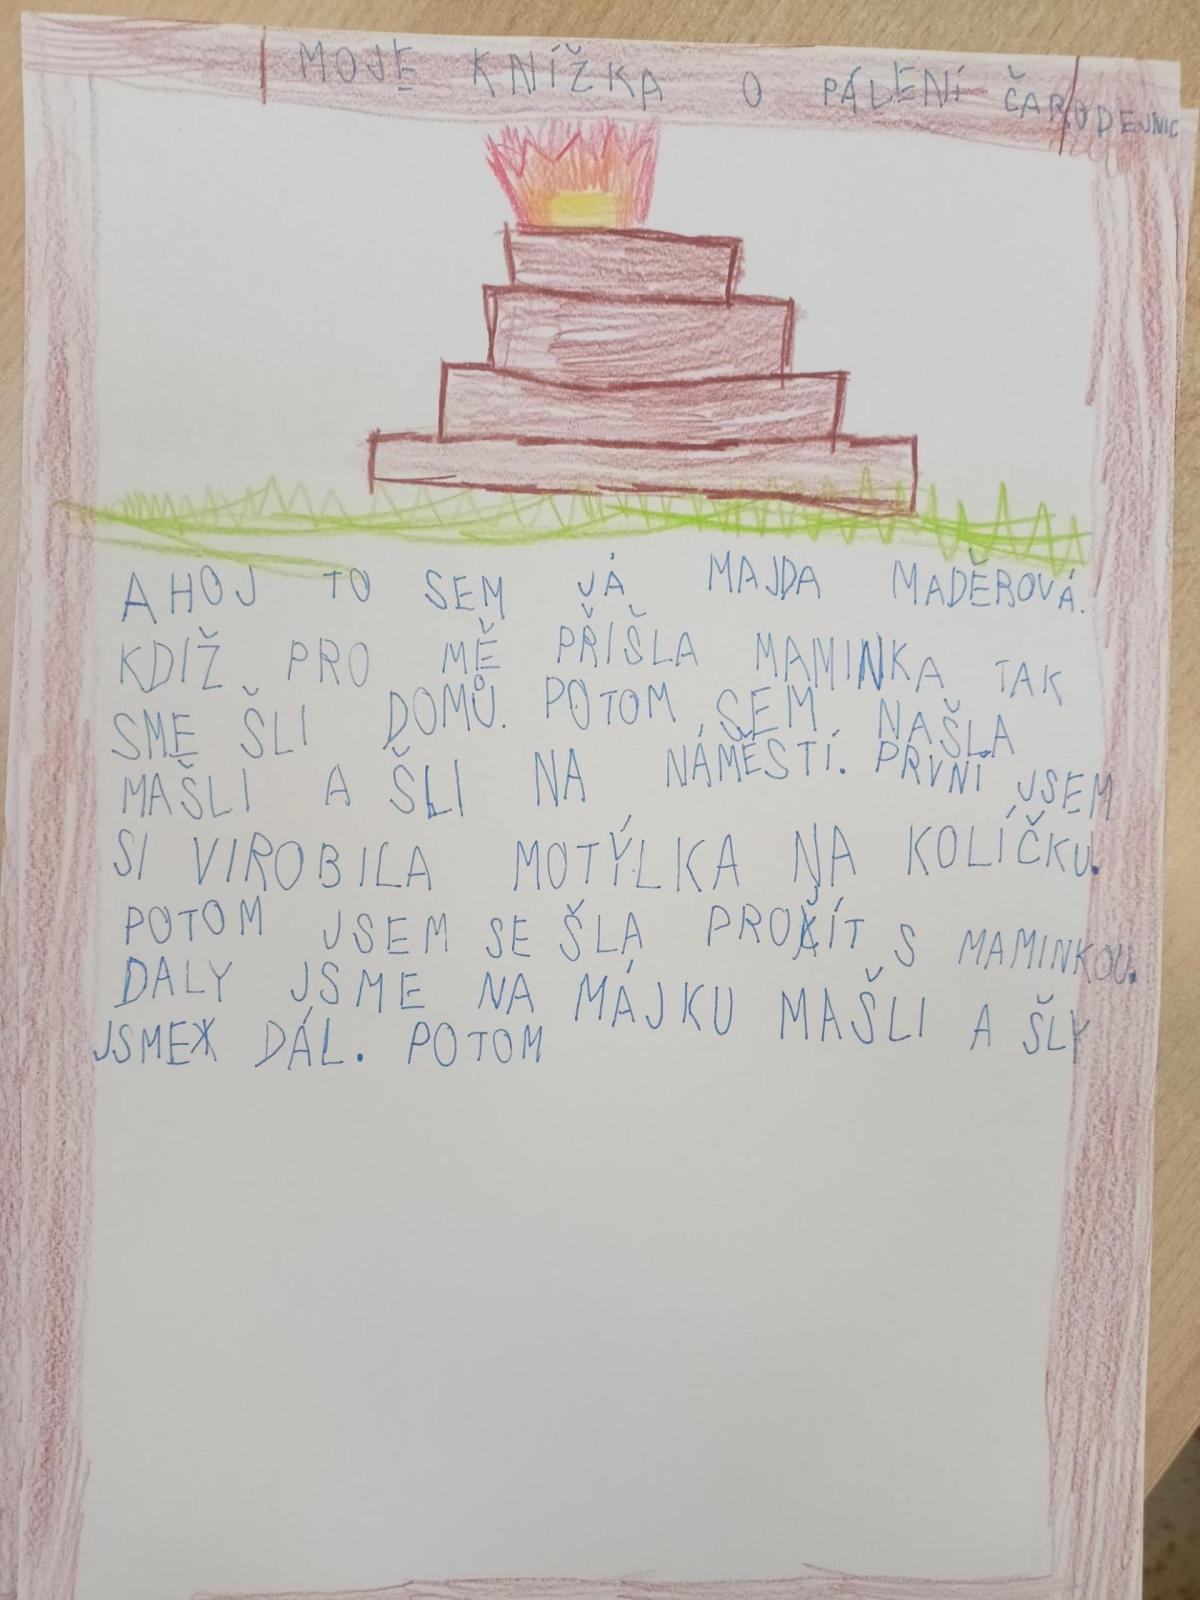 MOJE KNÍŽKA O PÁLENÍ ČARODEJNIC
AHOJ TO SEM JÁ MAJDA MADĚROVÁ.
KDIŽ PRO MĚ PŘIŠLA MAMINKA TAK
SME ŠLI DOMŮ. POTOM SEM NAŠLA
MAŠLI A ŠLI NA NÁMĚSTÍ. PRVNÍ JSEM
SI VIROBILA MOTÝLKA NA KOLÍČKU.
POTOM JSEM SE ŠLA PROŽÍT S MAMINKOU.
DALY JSME NA MÁJKU MAŠLI A ŠLY
JSME DÁL. POTOM